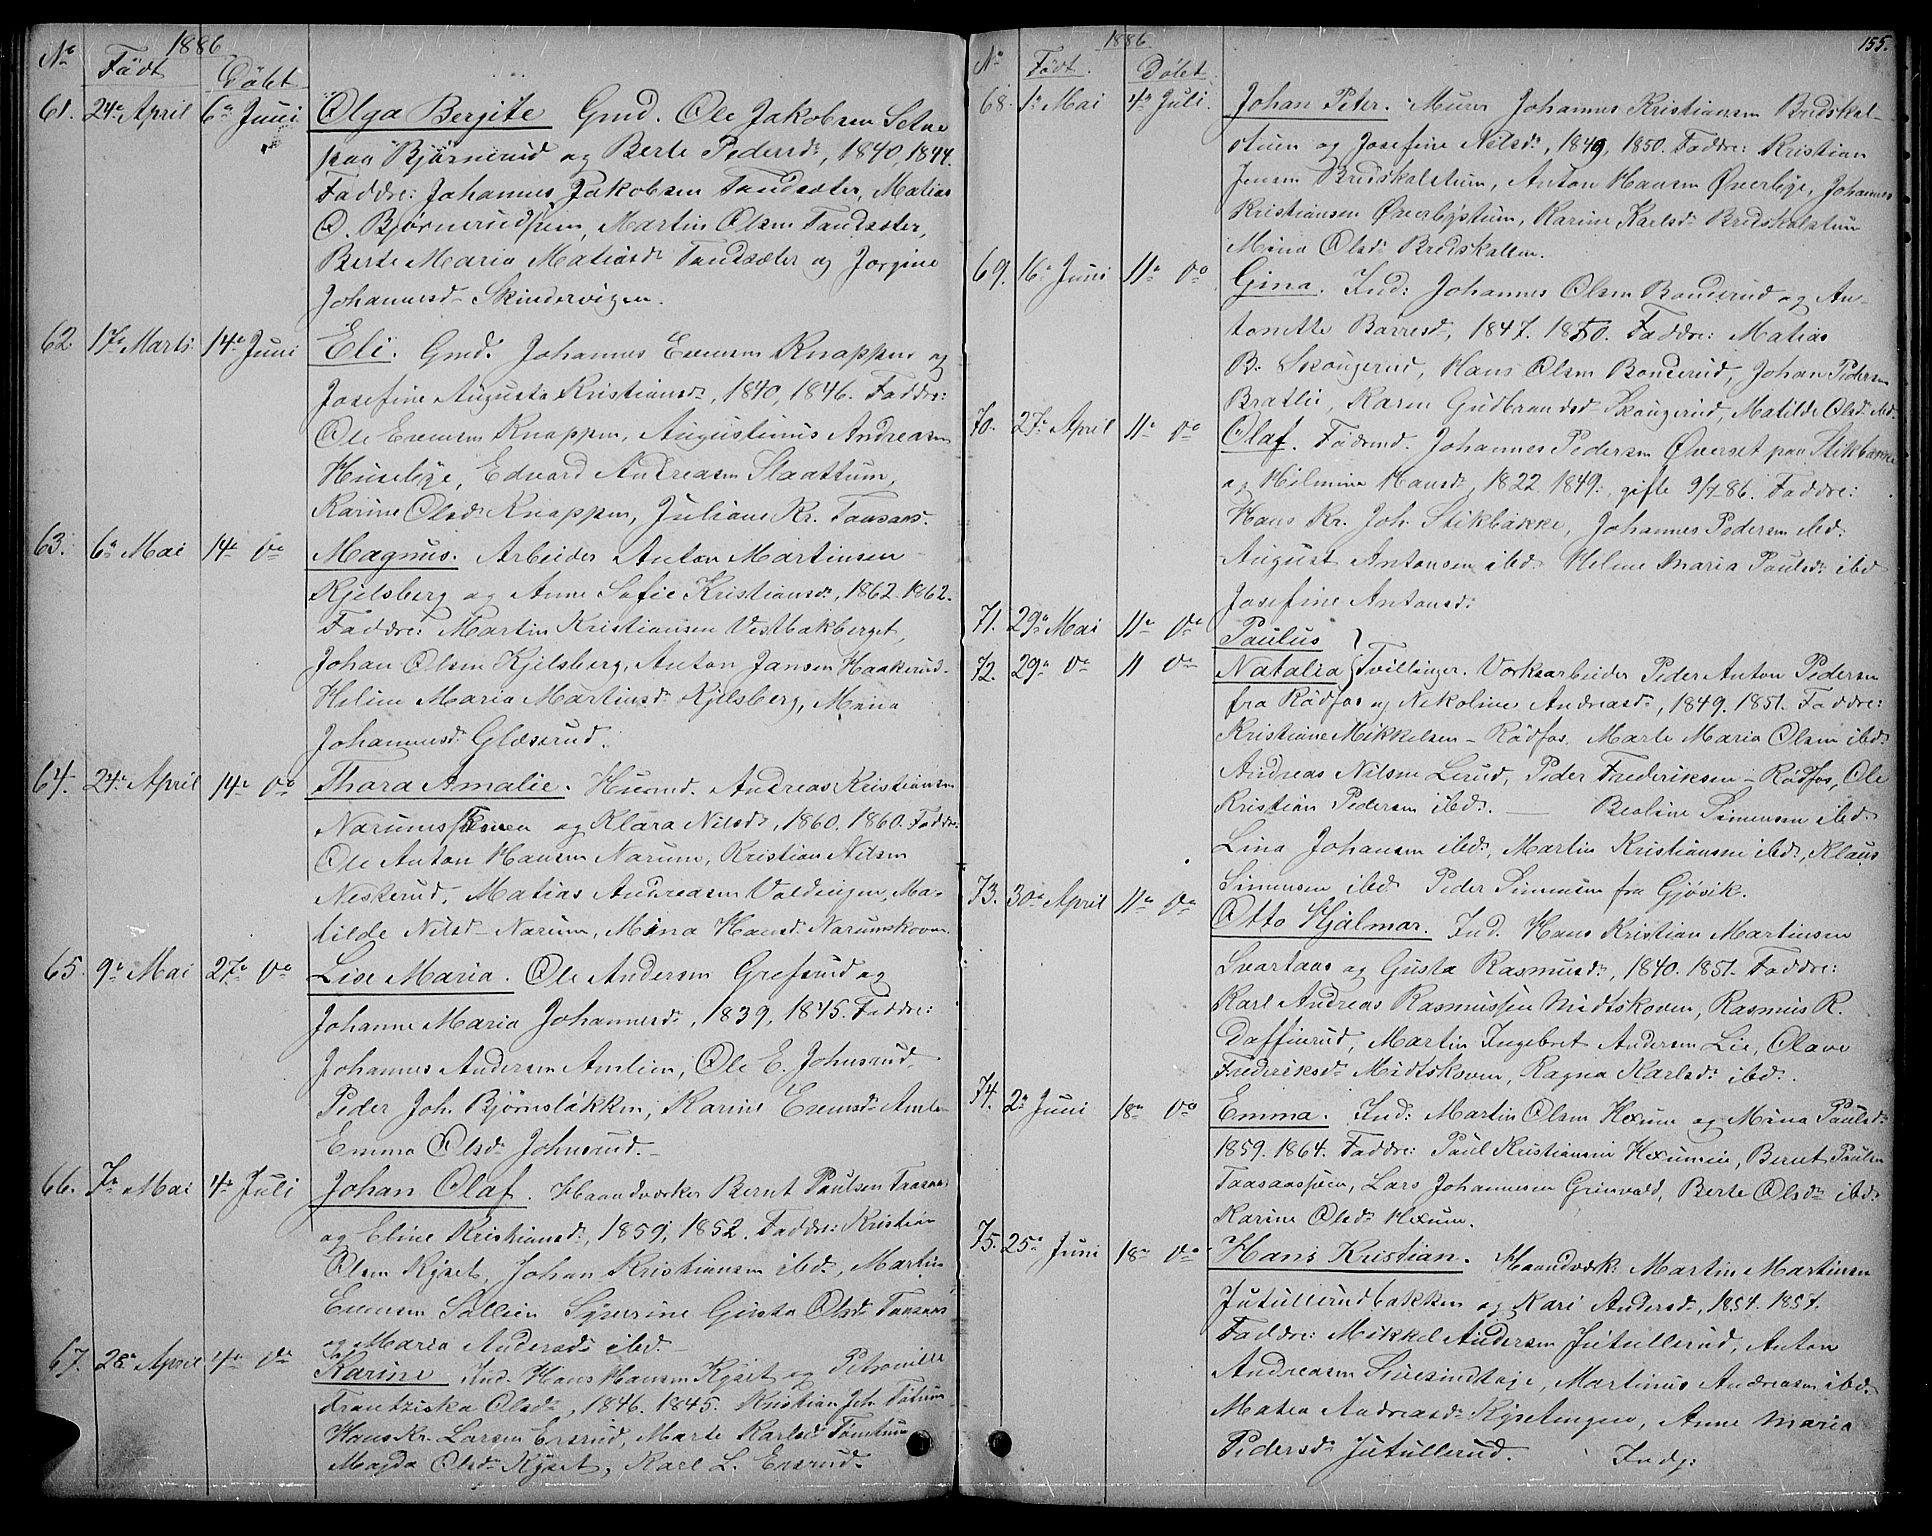 1886
No Födt Döbt
61. 24de April 6te Juni Olga Bergite Gmd. Ole Jakobsen Setne
paa Björnerud og Berte Pedersdr, 1840, 1844.
Faddre: Johannes Jakobsen Tandsæter, Matias
O. Björnerudeien, Martin Olsen Tandsæter,
Berte Maria Matiasdr Tandsæter og Jorgine
Johannesdr Skindervigen.
62. 17de Marts 14de Juni Eli. Gmd. Johannes Evensen Knappen og
Josefine Augusta Kristiansdr, 1840, 1846. Faddre:
Ole Evensen Knappen, Augustinus Andreasen
Huseby, Edvard Andreasen Slaattum,
Karine Olsdr Knappen, Juliane Kr. Taasaas.
63. 6te Mai 14de Do Magnus. Arbeider Anton Martinsen
Kjelsberg og Anne Sofie Kristiansdr, 1862. 1862.
Faddre: Martin Kristiansen Vestbakberget,
Johan Olsen Kjelsberg, Anton Jansen Haakerud
Heline Maria Martinsdr Kjelsberg, Mina
Johannesdr Glæserud.
64. 24de April 14de Do Thora Amalie. Husmd. Andreas Kristiansen
og Klara Nilsdr, 1860. 1860. Faddre:
Ole Anton Hansen Narum, Kristian Nilsen
Neskerud, Matias Andreasen Valdingen, Ma-
tilde Nilsdr Narum, Mina Hansdr Narumskoven.
65. 9de Mai 27de Do Lise Maria. Ole Andersen Grefsrud og
Johanne Maria Johannesdr, 1839, 1845. Faddre:
Johannes Andersen Amlien, Ole E. Johnsrud
Peder Joh. Björnsläkken, Karine Evensdr Amlien
Emma Olsdr Johnsrud.
66. 7de Mai 4de Juli Johan Olaf. Haandværker Bernt Paulsen Taasaas
og Eline Kristiansdr, 1859, 1852. Faddre: Kristian
Olsen Kyset, Johan Kristiansen ibd., Martin
Evensen Sollien Syverine Gusta Olsdr Taasaas
og Maria Andersdr ibd.
67. 28de April 4de Do Karine Ind. Hans Hansen Kyset og Petronille
Frantziska Olsdr, 1846. 1845. Kristian Joh.
Hans Kr. Larsen Ersrud, Marte Karlsdr Tömtum
Magda Olsdr Kyset, Karl L. Ersrud.
1886
155.
No Födt. Döbt
68. 1ste Mai 4de Juli. Johan Peter. Murer Johannes Kristiansen Bredskal-
stuen og Josefine Nilsdr, 1849, 1850. Faddre: Kristian
Jensen Bredskalstuen, Anton Hansen Överbye, Johannes
Kristiansen Överbystuen, Karine Karlsdr Bredskalstuen
Mina Olsdr Bredskallen.
69. 16de Juni 11te Do Gina. Ind: Johannes Olsen Bonderud og An-
tonette Barresdr, 1847. 1850. Faddre: Matias
B. Skougerud, Hans Olsen Bonderud, Johan Pedersen
Bratlie, Karen Gudbrandsdr Skougerud, Matilde Olsdr ibd.
70. 27de April 11te Do Olaf. Föderaad. Johannes Pedersen Överset paa Stikbakke
og Hilmine Hansdr, 1822, 1849, gifte 9/7 86. Faddre:
Hans Kr. Joh. Stikbakke, Johannes Pedersen ibd.
August Antonsen ibd. Helene Maria Paulsdr ibd
Josefine Antonsdr
71. 29de Mai 11te Do Paulus
72. 29de Do 11 Do Natalia } Tvillinger. Værksarbeider Peder Anton Pedersen
fra Rödfos og Nikoline Andreasdr, 1849. 1851. Faddre:
Kristiane Mikkelsen Rödfos, Marte Maria Olsen ibd.
Andreas Nilsen Lerud, Peder Frederiksen Rödfos, Ole
Kristian Pedersen ibd. — Beoline Simensen ibd.
Lina Johansen ibd., Martin Kristiansen ibd., Klaus
Simensen ibd. Peder Simensen fra Gjövik.
73. 30de April 11te Do Otto Hjalmar. Ind. Hans Kristian Martinsen
Svartaas og Gusta Rasmusdr, 1840. 1851. Faddre:
Karl Andreas Rasmussen Midtskoven, Rasmus R.
Daffinrud, Martin Ingebret Andersen Lie, Olave
Fredriksdr Midtskoven, Ragna Karlsdr ibd.
74. 2den Juni 18de Do Emma. Ind: Martin Olsen Hexum og Mina Paulsdr
1859. 1864. Faddre: Paul Kristiansen Hexumeie, Bernt Paulsen
Taasaaseien, Lars Johannesen Grinvald, Berte Olsdr ibd.
Karine Olsdr Hexum.
75. 25de Juni 18de Do Hans Kristian. Haandværk: Martin Martinsen
Jutullerudbakken og Kari Andersdr, 1854. 1857.
Faddre: Mikkel Andersen Jutullerud, Anton
Andreasen, Martinus Andreasen ibd.
Matea Andreasdr Kysetengen, Anne Maria
Pedersdr Jutullerud. Indf: